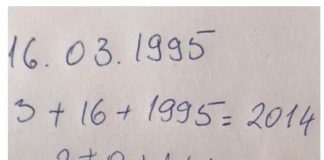 16.03.1995
3 + 16 + 1995 = 2014